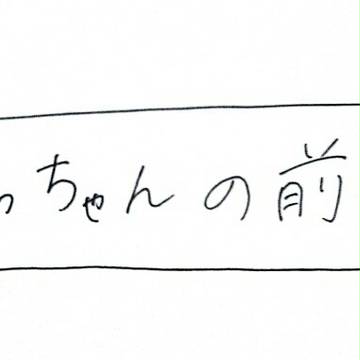 っちゃんの前